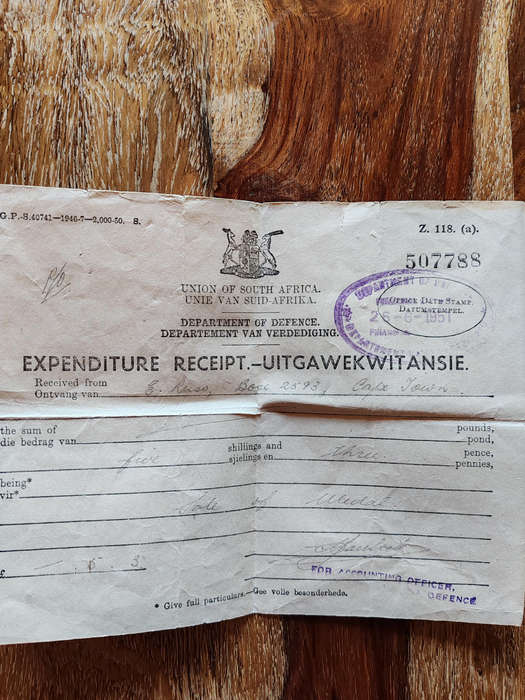 G.P.-S.40741—1946-7—2,000-50. S.
Z. 118. (a).
507788
UNION OF SOUTH AFRICA.
UNIE VAN SUID-AFRIKA.
DEPARTMENT OF DEFENCE.
DEPARTEMENT VAN VERDEDIGING.
OFFICE DATE STAMP.
DATUMSTEMPEL.
DEPARTMENT OF
26-6-1951
EXPENDITURE RECEIPT.—UITGAWEKWITANSIE.
Received from
Ontvang van
Box 2593, Cape Town.
the sum of
die bedrag van
pounds,
pond,
five
shillings and
sjielings en
three
pence,
pennies,
being*
vir*
Sale of Medal
£ - . 5 . 3
FOR ACCOUNTING OFFICER,
DEFENCE
* Give full particulars.—Gee volle besonderhede.